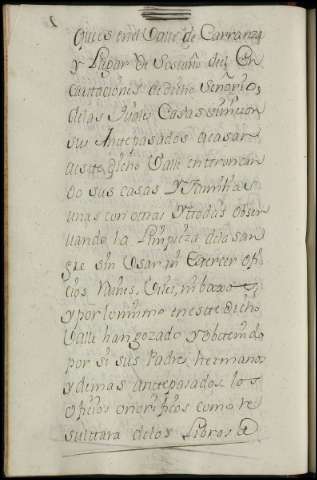 que es en el Valle de Carranza
y Lugar de Soscaño de las En
cartaciones de dicho Señorio,
delas Quales Casas
sus Antepasados acasar
aeste dicho Valle entroncan
do sus casas Y familias
unas con otras Y todas obser
uando la Limpieza dela san
gre sin Usar, ni Exercer ofi
cios Viles, ni baxos
y por lo mismo en este Dicho
Valle han gozado y obtenido
por si sus Padre, hermano,
y demas antepasados lo s
oficios onorificos como re
sultara delos Libros de